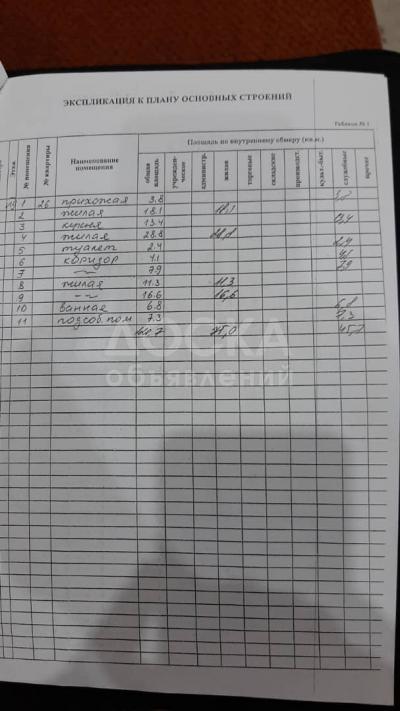 ЭКСПЛИКАЦИЯ К ПЛАНУ ОСНОВНЫХ СТРОЕНИЙ
Таблица № 1
Этаж
№ помещения
№ квартиры
Наименование помещения
Площадь по внутреннему обмеру (кв.м.)
общая площадь
учрежден-ческие
администр.
жилая
торговые
складские
производст.
культ.-быт.
служебные
прочие
1 26 прихожая 3.8 3,8
2 жилая 18.1 18,1
3 кухня 13.4 13,4
4 жилая 28.8
5 туалет 2.4 2,4
6 коридор 4.1 4,1
7 -~- 7.9 7,9
8 жилая 11.3 11.3
9 -~- 16.6 16,6
10 ванная 6.8 6,8
11 подсоб.пом 7.3 7,3
45,7
ДОСКА
объявлений